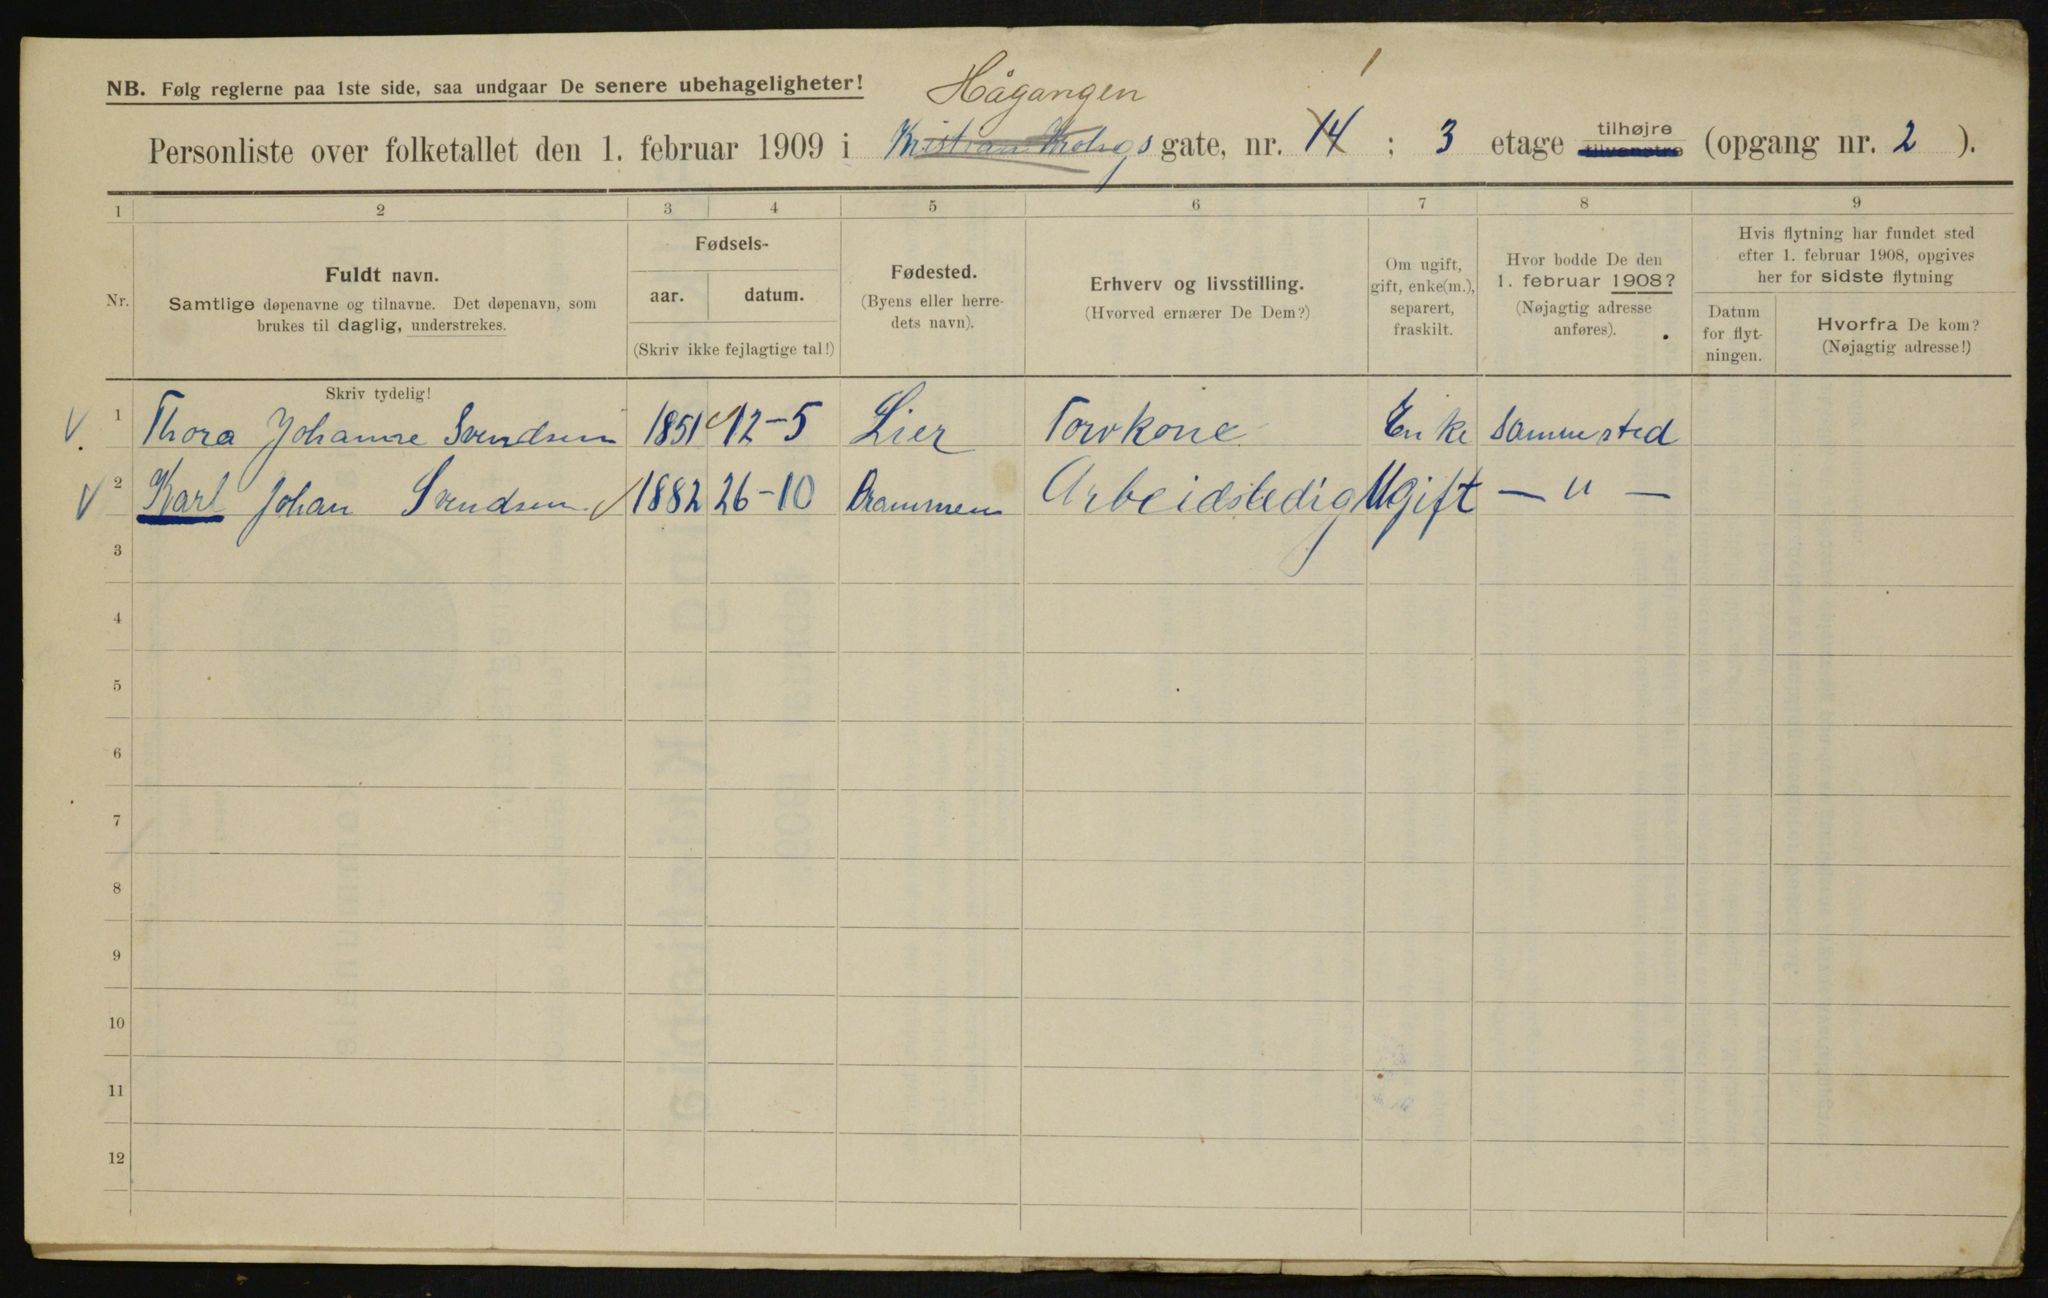 NB. Følg reglerne paa 1ste side, saa undgaar De senere ubehageligheter!
Hågangen 1
Personliste over folketallet den 1. februar 1909 i Kristian Krohgs gate, nr. 14 ; 3 etage tilhøjre tilvenstre (opgang nr. 2 ).
1 2 3 4 5 6 7 8 9
Nr.
Fuldt navn.
Samtlige døpenavne og tilnavne. Det døpenavn, som
brukes til daglig, understrekes.
Fødsels-
aar. datum.
(Skriv ikke fejlagtige tal!)
Fødested.
(Byens eller herre-
dets navn).
Erhverv og livsstilling.
(Hvorved ernærer De Dem?)
Om ugift,
gift, enke(m.),
separert,
fraskilt.
Hvor bodde De den
1. februar 1908?
(Nøjagtig adresse
anføres).
Hvis flytning har fundet sted
efter 1. februar 1908, opgives
her for sidste flytning
Datum
for flyt-
ningen.
Hvorfra De kom?
(Nøjagtig adresse!)
Skriv tydelig!
V. 1 Thora Johanne Svendsen 1851 12-5 Lier Torvkone Enke Sammested
V 2 Karl Johan Svendsen 1882 26-10 Drammen Arbeidsledig Ugift — " —
3
4
5
6
7
8
9
10
11
12